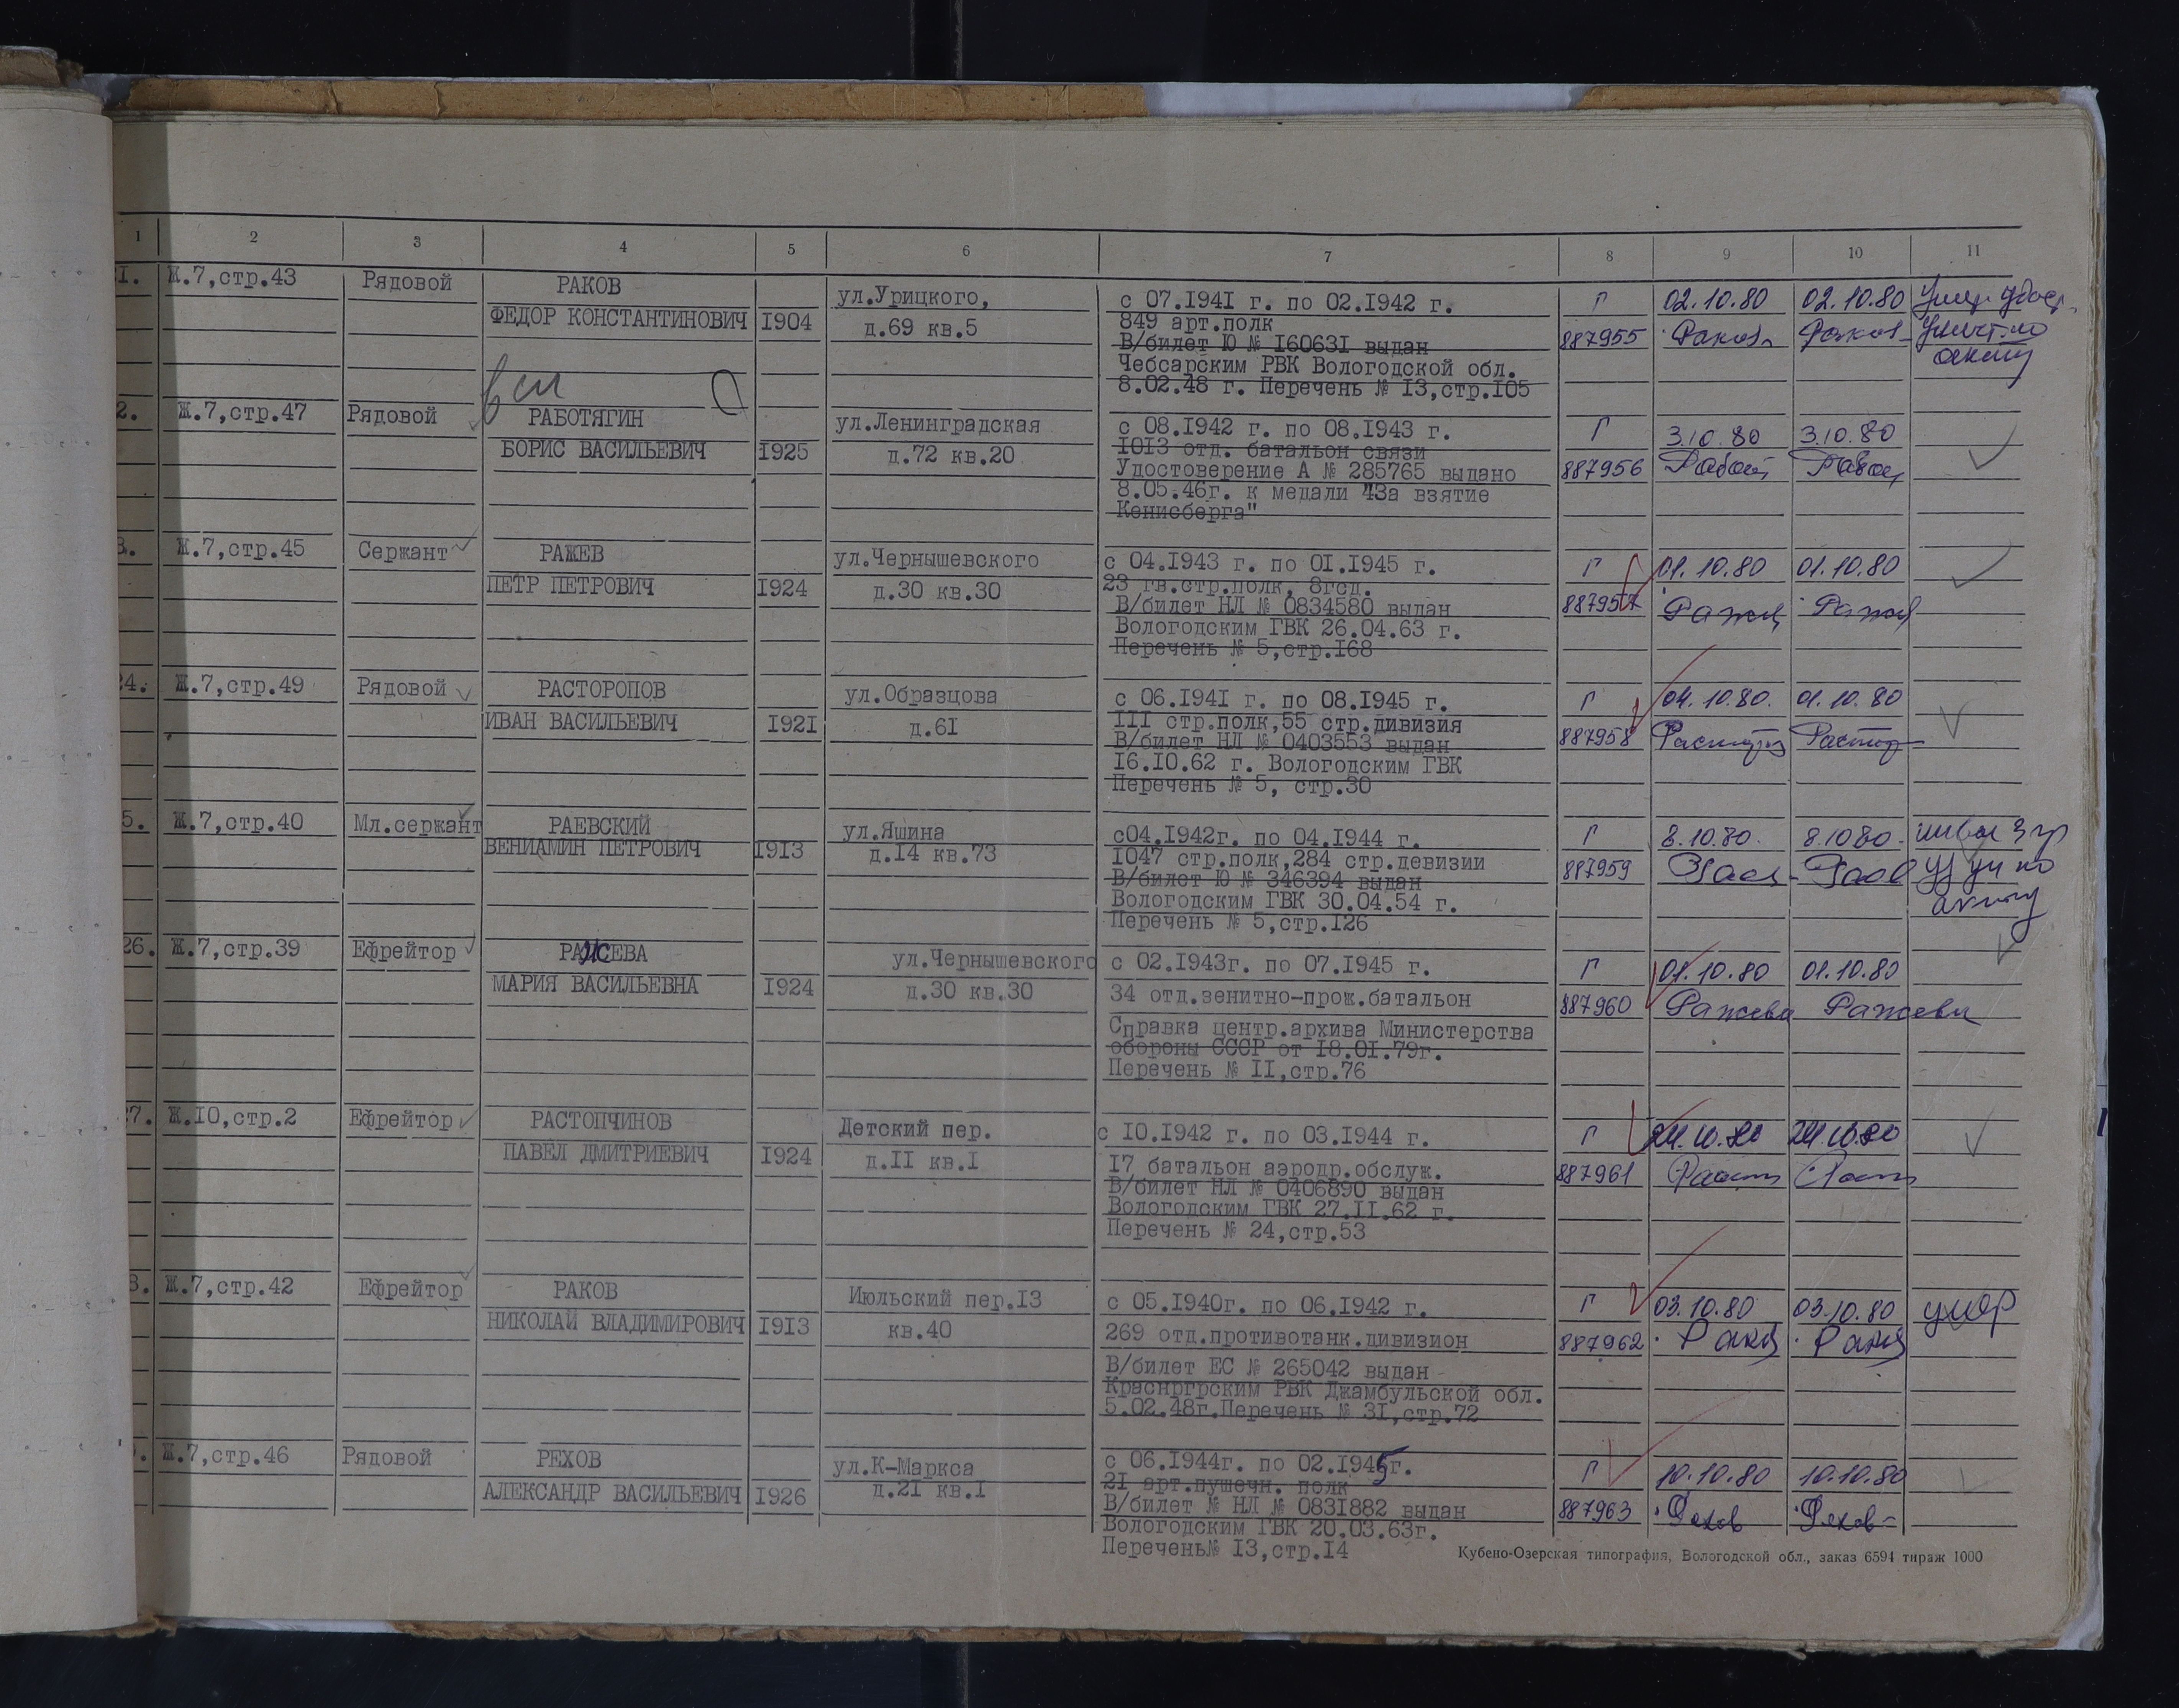 1 2 3 4 5 6 7 8 9 10 11
1. Ж.7,стр.43 Рядовой РАКОВ
ФЕДОР КОНСТАНТИНОВИЧ 1904
ул.Урицкого,
д.69 кв.5
с 07.1941 г. по 02.1942 г.
849 арт.полк
В/билет Ю № 160631 выдан
Чебсарским РВК Вологодской обл.
8.02.48 г. Перечень № 13,стр.105
Г 02.10.80 02.10.80
887955 Раков Раков
2. Ж.7,стр.47 Рядовой РАБОТЯГИН
БОРИС ВАСИЛЬЕВИЧ 1925
ул.Ленинградская
д.72 кв.20
с 08.1942 г. по 08.1943 г.
1013 отд. батальон связи
Удостоверение А № 285765 выдано
8.05.46г. к медали "За взятие
Кенисберга"
Г 3.10.80 3.10.80
887956
3. Ж.7,стр.45 Сержант РАЖЕВ
ПЕТР ПЕТРОВИЧ 1924
ул.Чернышевского
д.30 кв.30
с 04.1943 г. по 01.1945 г.
23 гв.стр.полк, 8гсд.
В/билет НЛ № 0834580 выдан
Вологодским ГВК 26.04.63 г.
Перечень № 5,стр.168
Г 01.10.80 01.10.80
887957
24. Ж.7,стр.49 Рядовой РАСТОРОПОВ
ИВАН ВАСИЛЬЕВИЧ 1921
ул.Образцова
д.61
с 06.1941 г. по 08.1945 г.
111 стр.полк,55 стр.дивизия
В/билет НЛ № 0403553 выдан
16.10.62 г. Вологодским ГВК
Перечень № 5, стр.30
Г 01.10.80
887958
5. Ж.7,стр.40 Мл.сержант РАЕВСКИЙ
ВЕНИАМИН ПЕТРОВИЧ 1913
ул.Яшина
д.14 кв.73
с04.1942г. по 04.1944 г.
1047 стр.полк,284 стр.девизии
В/билет Ю № 346394 выдан
Вологодским ГВК 30.04.54 г.
Перечень № 5,стр.126
Г 8.10.80. 8.10.80.
887959
26. Ж.7,стр.39 Ефрейтор РАЖЕВА
МАРИЯ ВАСИЛЬЕВНА 1924
ул.Чернышевского
д.30 кв.30
с 02.1943г. по 07.1945 г.
34 отд.зенитно-прож.батальон
Справка центр.архива Министерства
обороны СССР от 18.01.79г.
Перечень № 11,стр.76
Г 01.10.80 01.10.80
887960 Ражева Ражева
27. Ж.10,стр.2 Ефрейтор РАСТОПЧИНОВ
ПАВЕЛ ДМИТРИЕВИЧ 1924
Детский пер.
д.11 кв.1
с 10.1942 г. по 03.1944 г.
17 батальон аэродр.обслуж.
В/билет НЛ № 0406890 выдан
Вологодским ГВК 27.11.62 г.
Перечень № 24,стр.53
Г 24.10.80 24.10.80
887961
8. Ж.7,стр.42 Ефрейтор РАКОВ
НИКОЛАЙ ВЛАДИМИРОВИЧ 1913
Июльский пер.13
кв.40
с 05.1940г. по 06.1942 г.
269 отд.противотанк.дивизион
В/билет ЕС № 265042 выдан
Краснргрским РВК Джамбульской обл.
5.02.48г.Перечень № 31,стр.72
Г 03.10.80 03.10.80 умер
887962
Ж.7,стр.46 Рядовой РЕХОВ
АЛЕКСАНДР ВАСИЛЬЕВИЧ 1926
ул.К-Маркса
д.21 кв.1
с 06.1944г. по 02.1945г.
21 арт.пушечн. полк
В/билет № НЛ № 0831882 выдан
Вологодским ГВК 20.03.63г.
Перечень№ 13,стр.14
Г 10.10.80 10.10.80
887963 Рехов Рехов
Кубено-Озерская типография, Вологодской обл., заказ 6594 тираж 1000